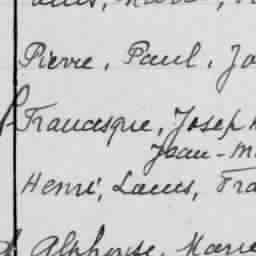 Louis, Marie,
Pierre, Paul, Jo
Francisque, Joseph
Jean-M
Henri, Louis, Fra
Alphonse, Marie